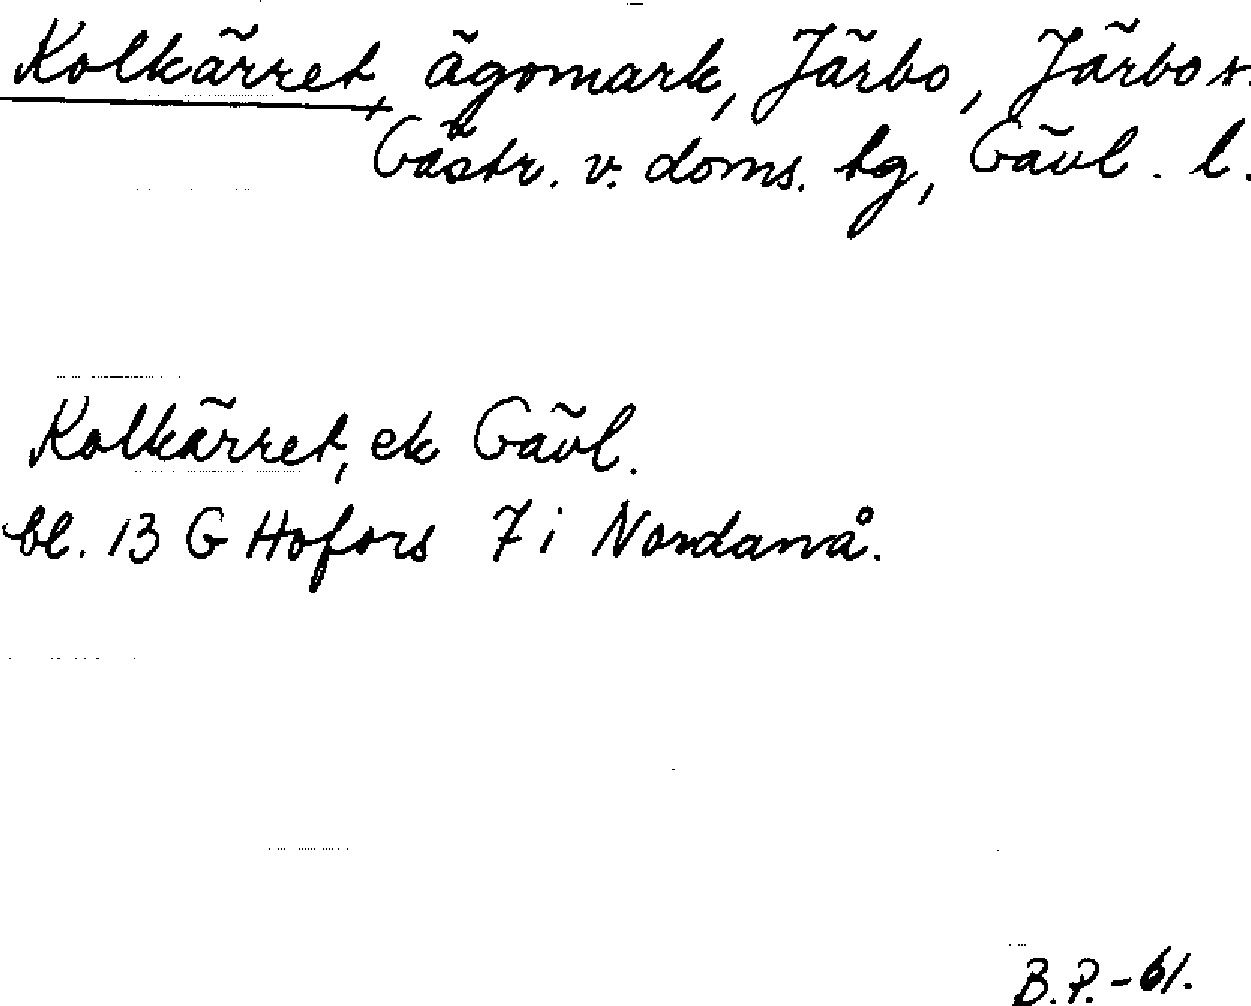 Kolkärret, ägomark, Järbo, Järbo s.
Gästr. v. doms. tg, Gävl. l.
Kolkärret, ek Gävl.
bl. 13 G Hofors 7 i Nordanå.
B.P. - 61.